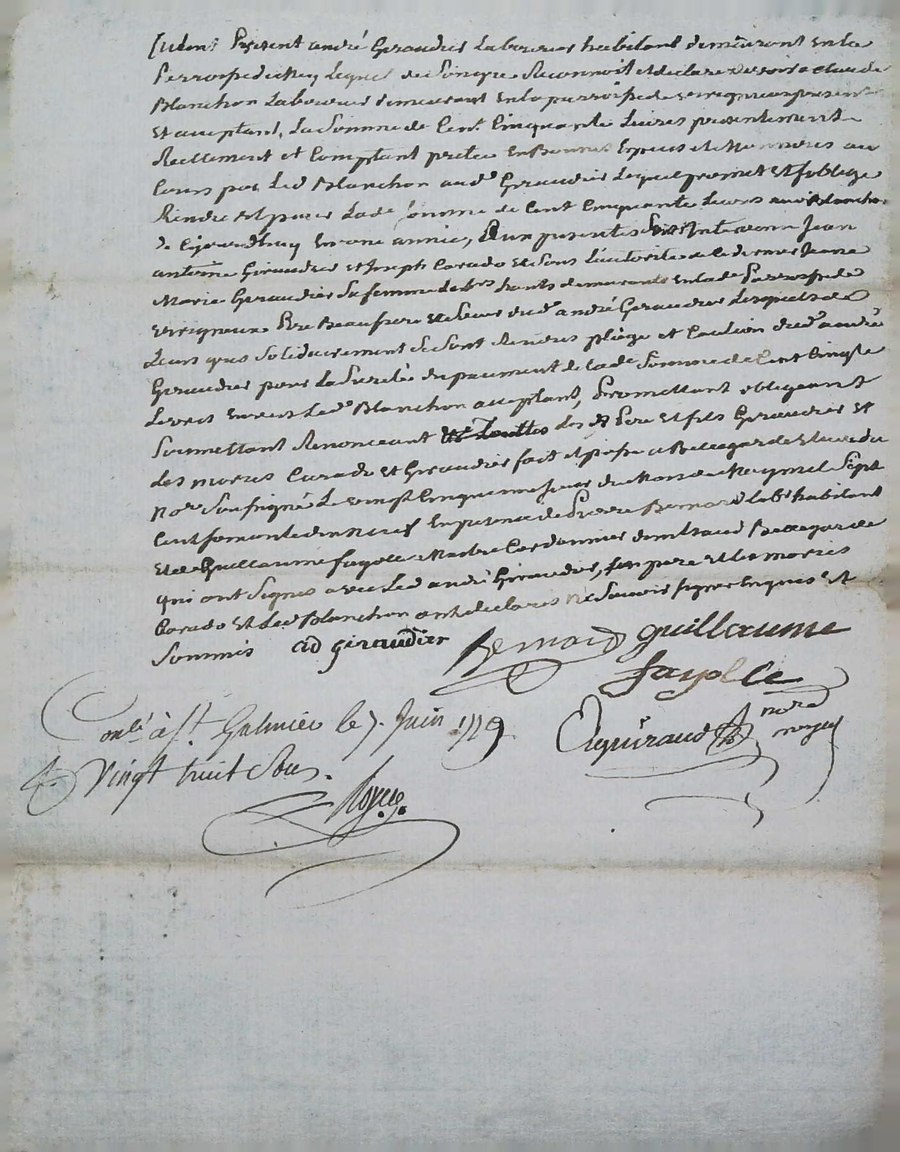 Present andré Giraudier Laboureur habitant demeurant En la
Lequel de Son gre Reconnoit et declare devoir a claude
Blanchon Laboureur demeurant En la parroisse de present
Et acceptant, La Somme de Cent Cinquante Livres presentement
Reellement et Comptant pretée En Bonnes Especes et Monnoies au
Cours par Led Blanchon aud Giraudier Lequel promet Et soblige
Rendre Et payer Lade somme de Cent Cinquante Livres aud Blanchon
de Cejourdhuy En une année, Aux presentes Jean
antoine Giraudier Et Joseph Carado Et Sous Lautorité de Ce dernier Jeanne
Marie Giraudier Sa femme demeurants En lade Parroisse de
Pere Beaufrere Et Sœur dud andré Giraudier Lesquels de
Leurs gres Solidairement Se Sont Rendus pleige et Caution dud andré
Giraudier pour La Sureté du paiement de lade Somme de Cent Cinqte
Livres Envers Led Blanchon acceptant, Promettant obligeant
Soumettant Renonceant des d Pere Et fils Giraudier Et
des mariés Carado Et Giraudier fait Et passé a Bellegarde Etude du
nore Soussigné Le vingt Cinquieme Jour du Mois de May mil Sept
Cent En presence de Pierre Bernard labr habitant
Et de Guillaume fayolle Maitre Cordonnier Bellegarde
qui ont Signés avec Led andré Giraudier, Son pere Et les mariés
Carado Et Led Blanchon ont declarés ne Scavoir Signer Enquis Et
Sommés ad giraudier
Bernard guillaume
fayolle
nore
royal
Conlé à St. Galmier le 7. Juin
Vingt huit Sous.